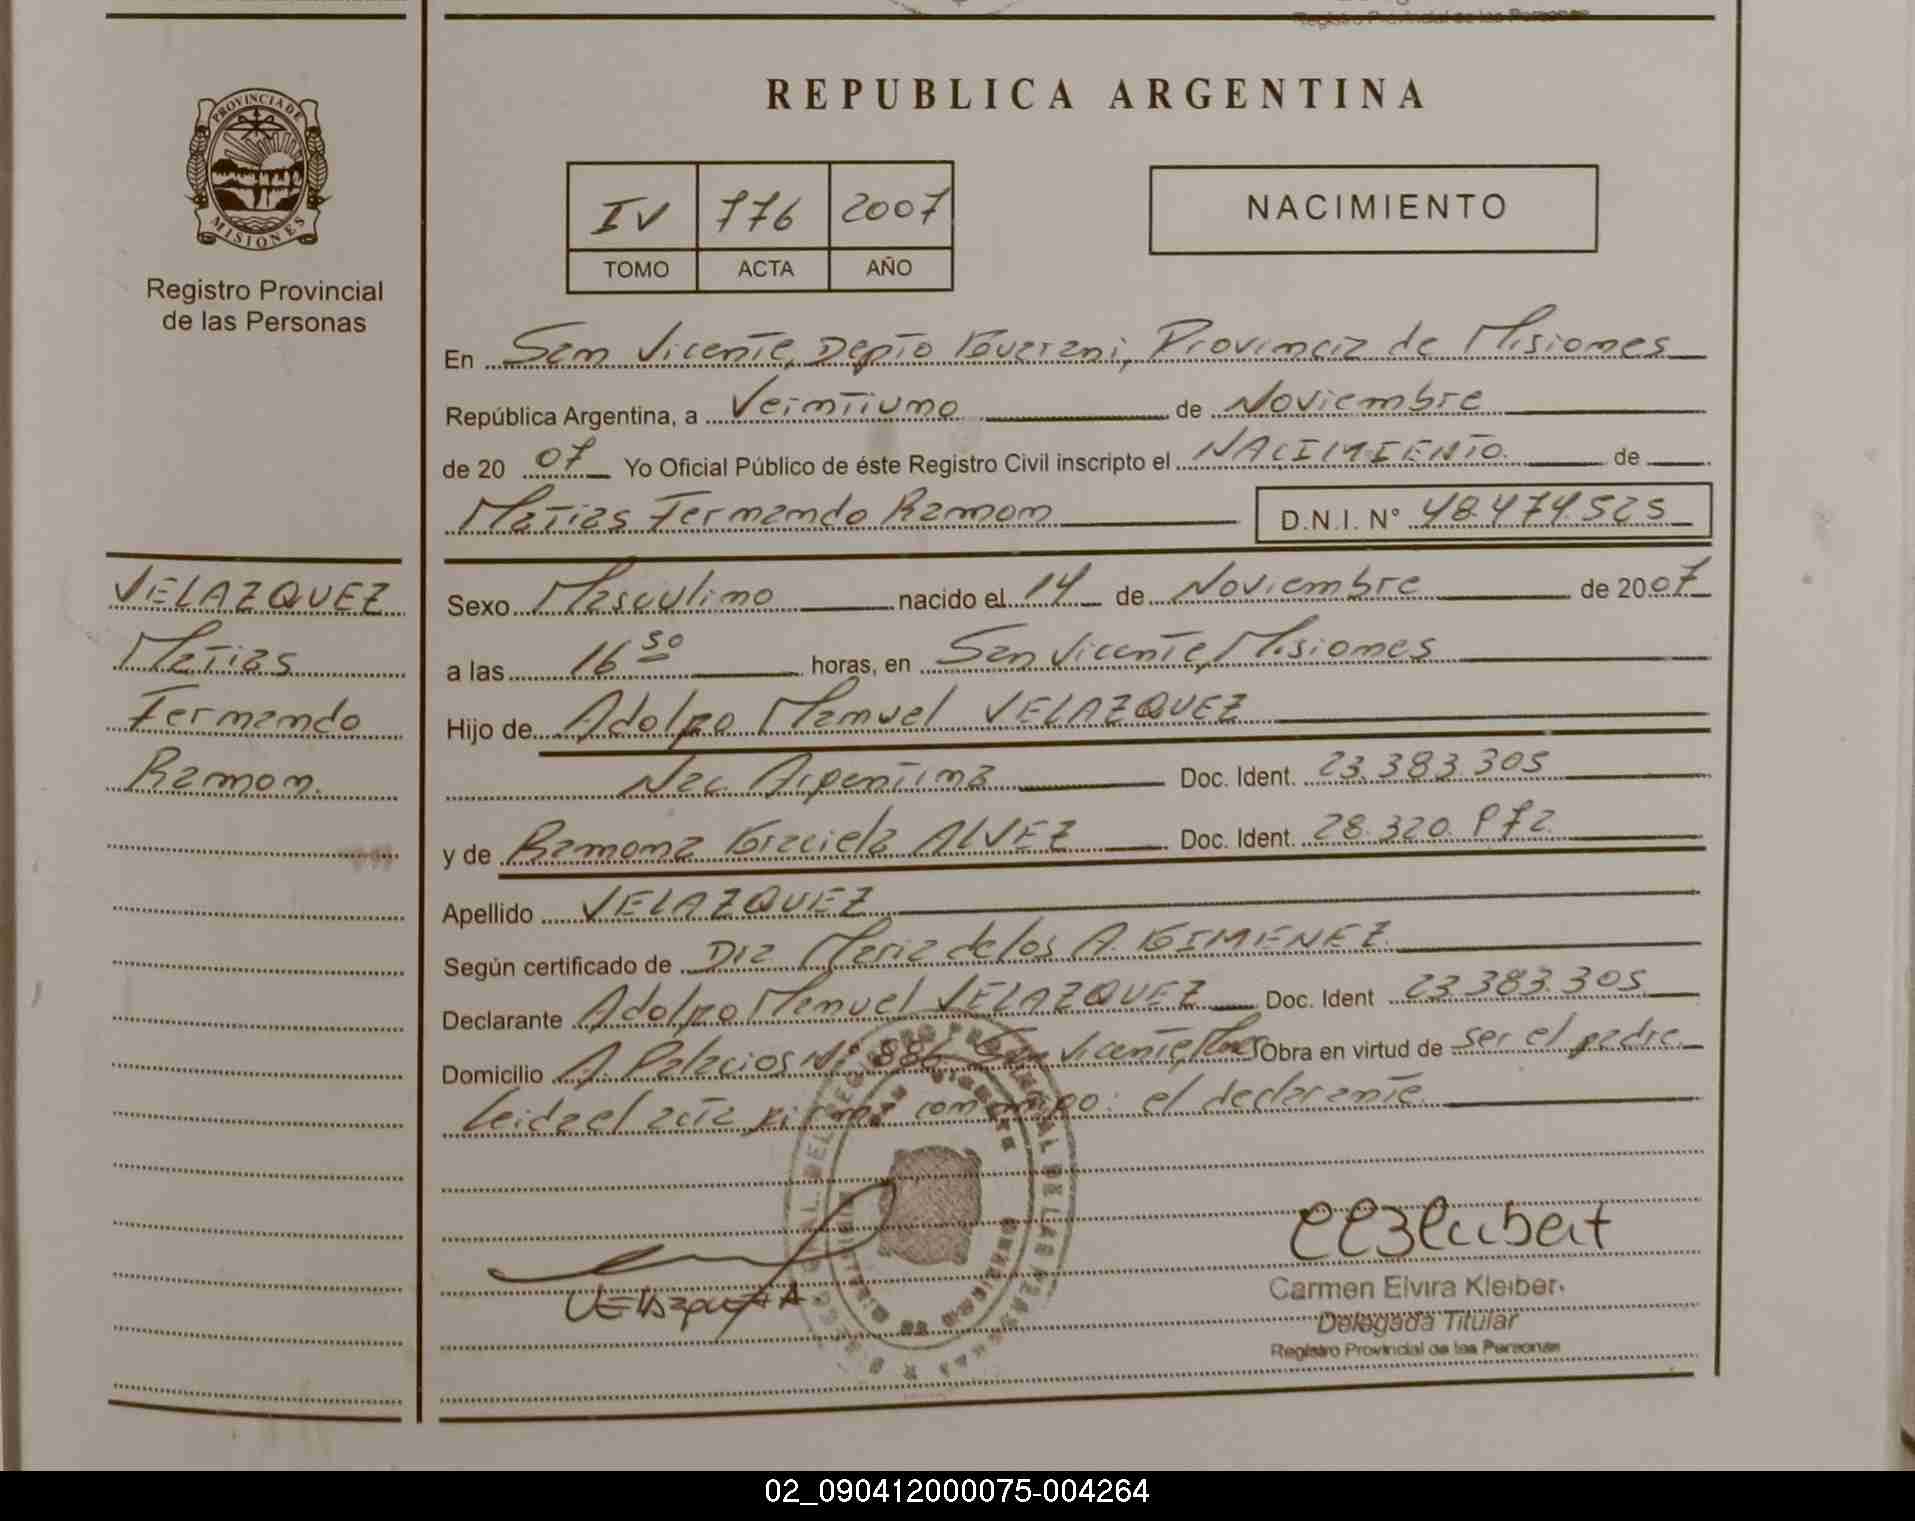 Registro Provincial de las Personas
PROVINCIA DE
MISIONES
Registro Provincial
de las Personas
REPUBLICA ARGENTINA
IV 776 2007
TOMO ACTA AÑO
NACIMIENTO
En San Vicente, Depto Guarani, Provincia de Misiones
República Argentina, a Veintiuno de Noviembre
de 20 07 Yo Oficial Público de éste Registro Civil inscripto el NACIMIENTO de
Matias Fernando Ramon D.N.I. N° 48.474.525
VELAZQUEZ
Matias
Fernando
Ramon.
Sexo Masculino nacido el 14 de Noviembre de 20 07
a las 16 30 horas, en San Vicente, Misiones
Hijo de Adolfo Manuel VELAZQUEZ
Nac. Argentina Doc. Ident. 23.383.305
y de Ramona Graciela ALVEZ Doc. Ident. 28.320.972
Apellido VELAZQUEZ
Según certificado de Dra Maria de los A. GIMENEZ
Declarante Adolfo Manuel VELAZQUEZ Doc. Ident 23.383.305
Domicilio A. Palacios N° 886 San Vicente, Mnes Obra en virtud de ser el padre.
Leida el acta firma conmigo: el declarante.
VELAZQUEZ A
Carmen Elvira Kleiber
Delegada Titular
Registro Provincial de las Personas
02_090412000075-004264